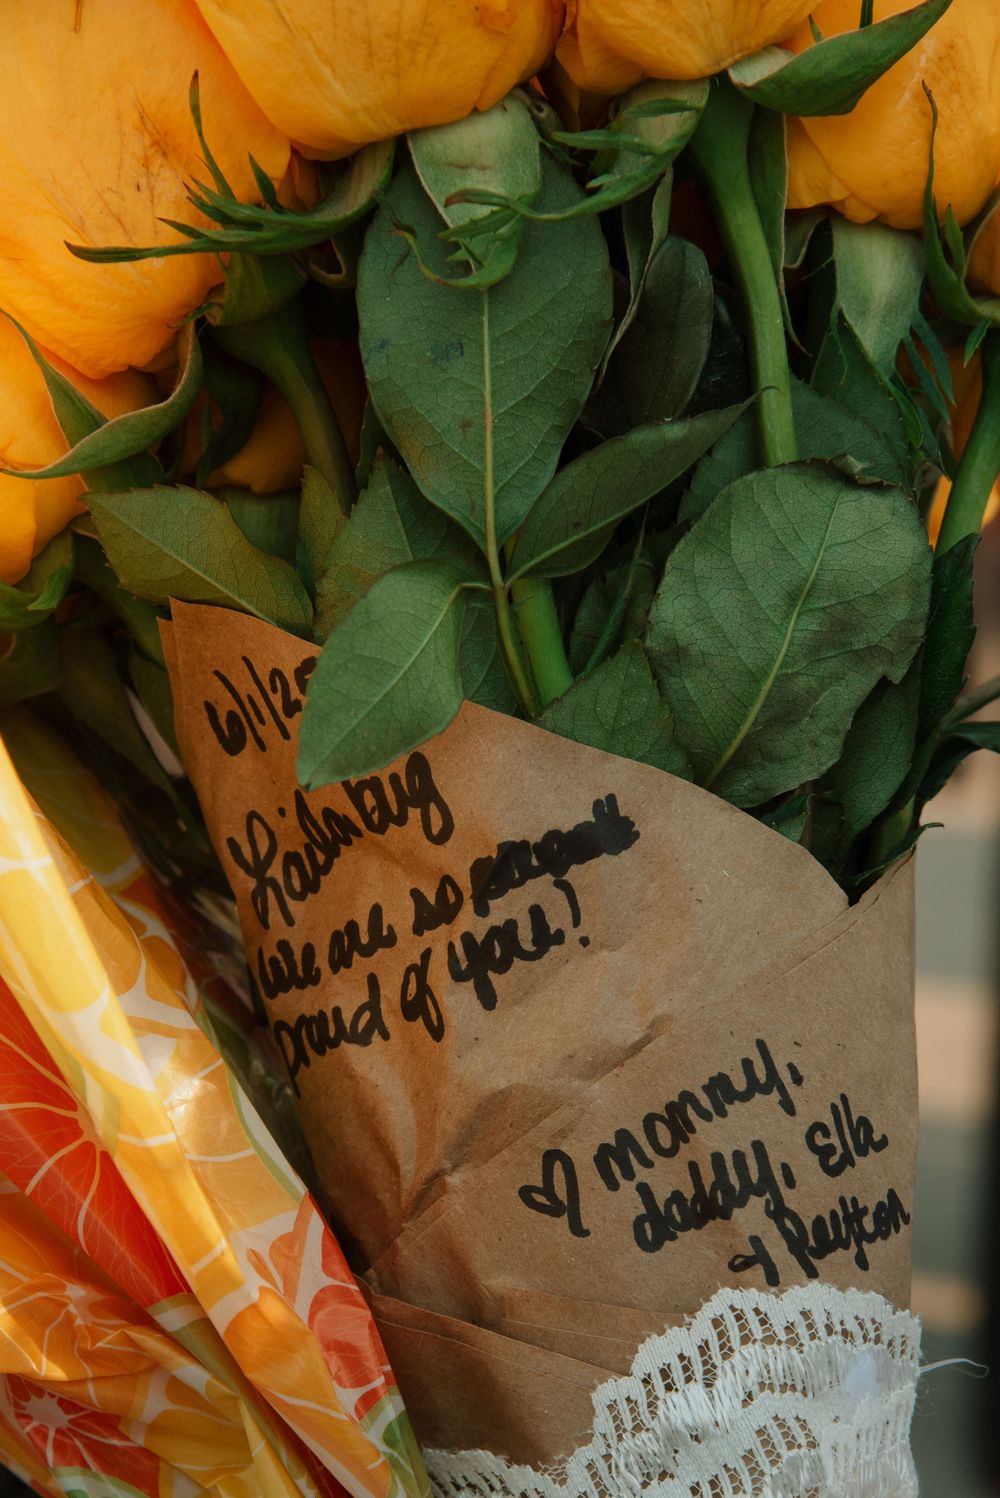 6/1/25
Lailabug
We are so
proud of you!
♡ mommy,
daddy, Ella
& Peyton